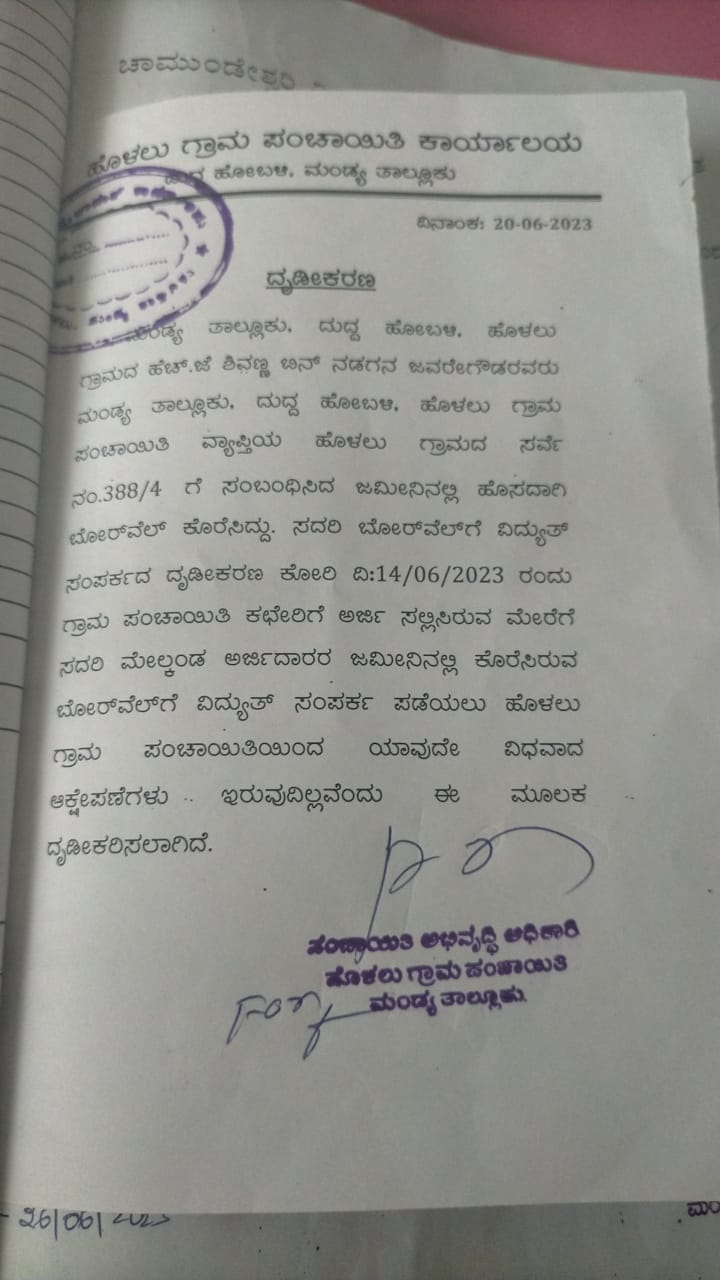 ಚಾಮುಂಡೇಶ್ವರಿ
ಹೊಳಲು ಗ್ರಾಮ ಪಂಚಾಯಿತಿ ಕಾರ್ಯಾಲಯ
ದುದ್ದ ಹೋಬಳಿ, ಮಂಡ್ಯ ತಾಲ್ಲೂಕು
ದಿನಾಂಕ: 20-06-2023
ದೃಡೀಕರಣ
ಮಂಡ್ಯ ತಾಲ್ಲೂಕು, ದುದ್ದ ಹೋಬಳಿ, ಹೊಳಲು
ಗ್ರಾಮದ ಹೆಚ್.ಜೆ ಶಿವಣ್ಣ ಬಿನ್ ನಡಗನ ಜವರೇಗೌಡರವರು
ಮಂಡ್ಯ ತಾಲ್ಲೂಕು, ದುದ್ದ ಹೋಬಳಿ, ಹೊಳಲು ಗ್ರಾಮ
ಪಂಚಾಯಿತಿ ವ್ಯಾಪ್ತಿಯ ಹೊಳಲು ಗ್ರಾಮದ ಸರ್ವೆ
ನಂ.388/4 ಗೆ ಸಂಬಂಧಿಸಿದ ಜಮೀನಿನಲ್ಲಿ ಹೊಸದಾಗಿ
ಬೋರ್‌ವೆಲ್ ಕೊರೆಸಿದ್ದು. ಸದರಿ ಬೋರ್‌ವೆಲ್‌ಗೆ ವಿದ್ಯುತ್
ಸಂಪರ್ಕದ ದೃಡೀಕರಣ ಕೋರಿ ದಿ:14/06/2023 ರಂದು
ಗ್ರಾಮ ಪಂಚಾಯಿತಿ ಕಛೇರಿಗೆ ಅರ್ಜಿ ಸಲ್ಲಿಸಿರುವ ಮೇರೆಗೆ
ಸದರಿ ಮೇಲ್ಕಂಡ ಅರ್ಜಿದಾರರ ಜಮೀನಿನಲ್ಲಿ ಕೊರೆಸಿರುವ
ಬೋರ್‌ವೆಲ್‌ಗೆ ವಿದ್ಯುತ್ ಸಂಪರ್ಕ ಪಡೆಯಲು ಹೊಳಲು
ಗ್ರಾಮ ಪಂಚಾಯಿತಿಯಿಂದ ಯಾವುದೇ ವಿಧವಾದ
ಆಕ್ಷೇಪಣೆಗಳು ಇರುವುದಿಲ್ಲವೆಂದು ಈ ಮೂಲಕ
ದೃಡೀಕರಿಸಲಾಗಿದೆ.
ಪಂಚಾಯಿತಿ ಅಭಿವೃದ್ಧಿ ಅಧಿಕಾರಿ
ಹೊಳಲು ಗ್ರಾಮ ಪಂಚಾಯಿತಿ
ಮಂಡ್ಯ ತಾಲ್ಲೂಕು.
26/06/2023